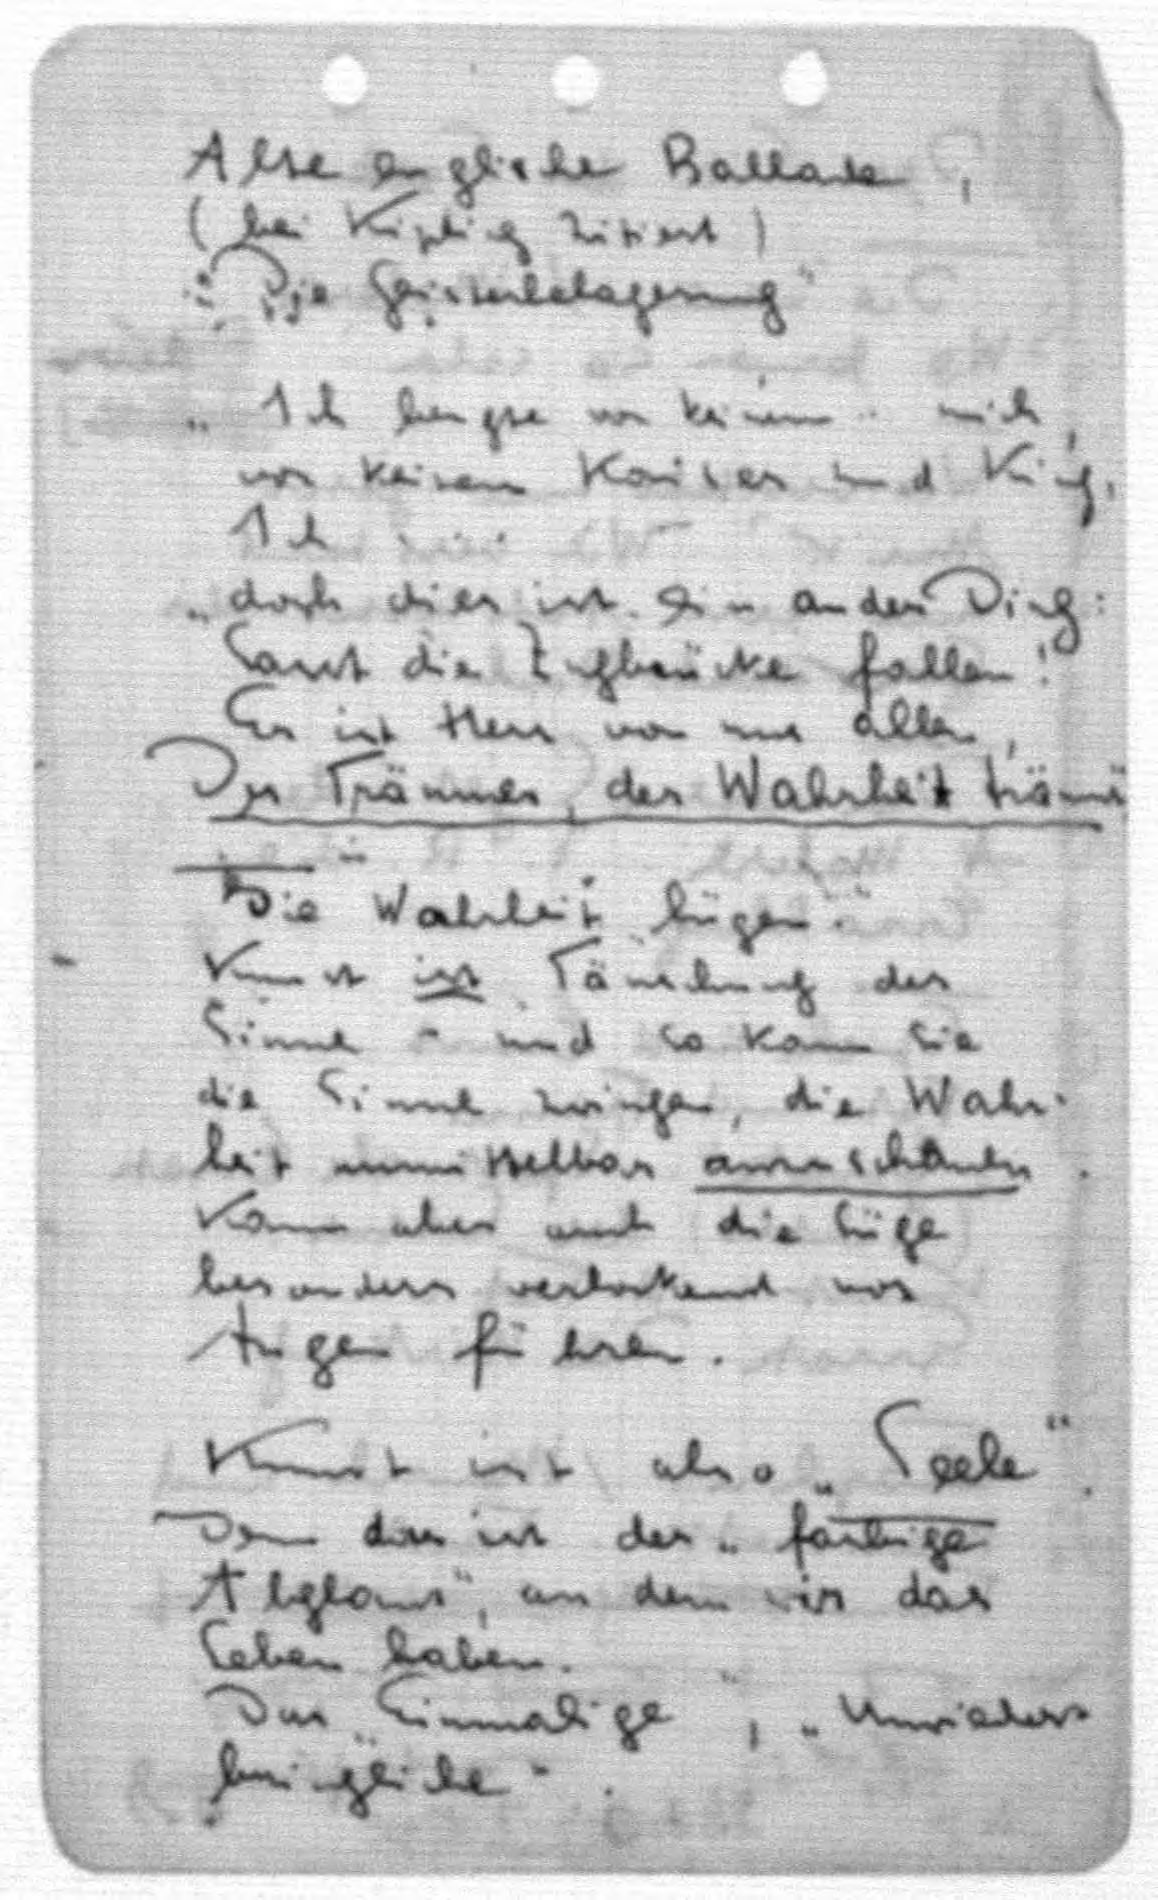 Alte englische Ballade,
(bei Kipling zitiert)
: "Die Geisterbelagerung"
„Ich beugte vor keinem mich,
vor keinem Kaiser und King,
Ich
„doch dies ist ein ander Ding:
Lasst die Zugbrücke fallen!
Er ist Herr von uns allen,
Der Träumer, der Wahrheit träumt
"Die Wahrheit lügen"
Kunst ist Täuschung der
Sinne - und so kann sie
die Sinne zwingen, die Wahr-
heit unmittelbar anzuschauen.
Kann aber auch die Lüge
besonders verlockend vor
Augen führen.
Kunst ist also „Seele".
Denn das ist der „farbige
Abglanz", an dem wir das
Leben haben.
Das „Einmalige", „Unwieder-
bringliche".